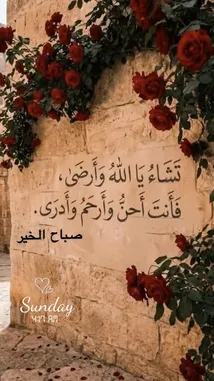 تَشَاءُ يَا اللهُ وَأَرْضَى،
فَأَنتَ أَحَنُّ وَأَرحَمُ وَأَدرَى.
صباح الخير
Sunday